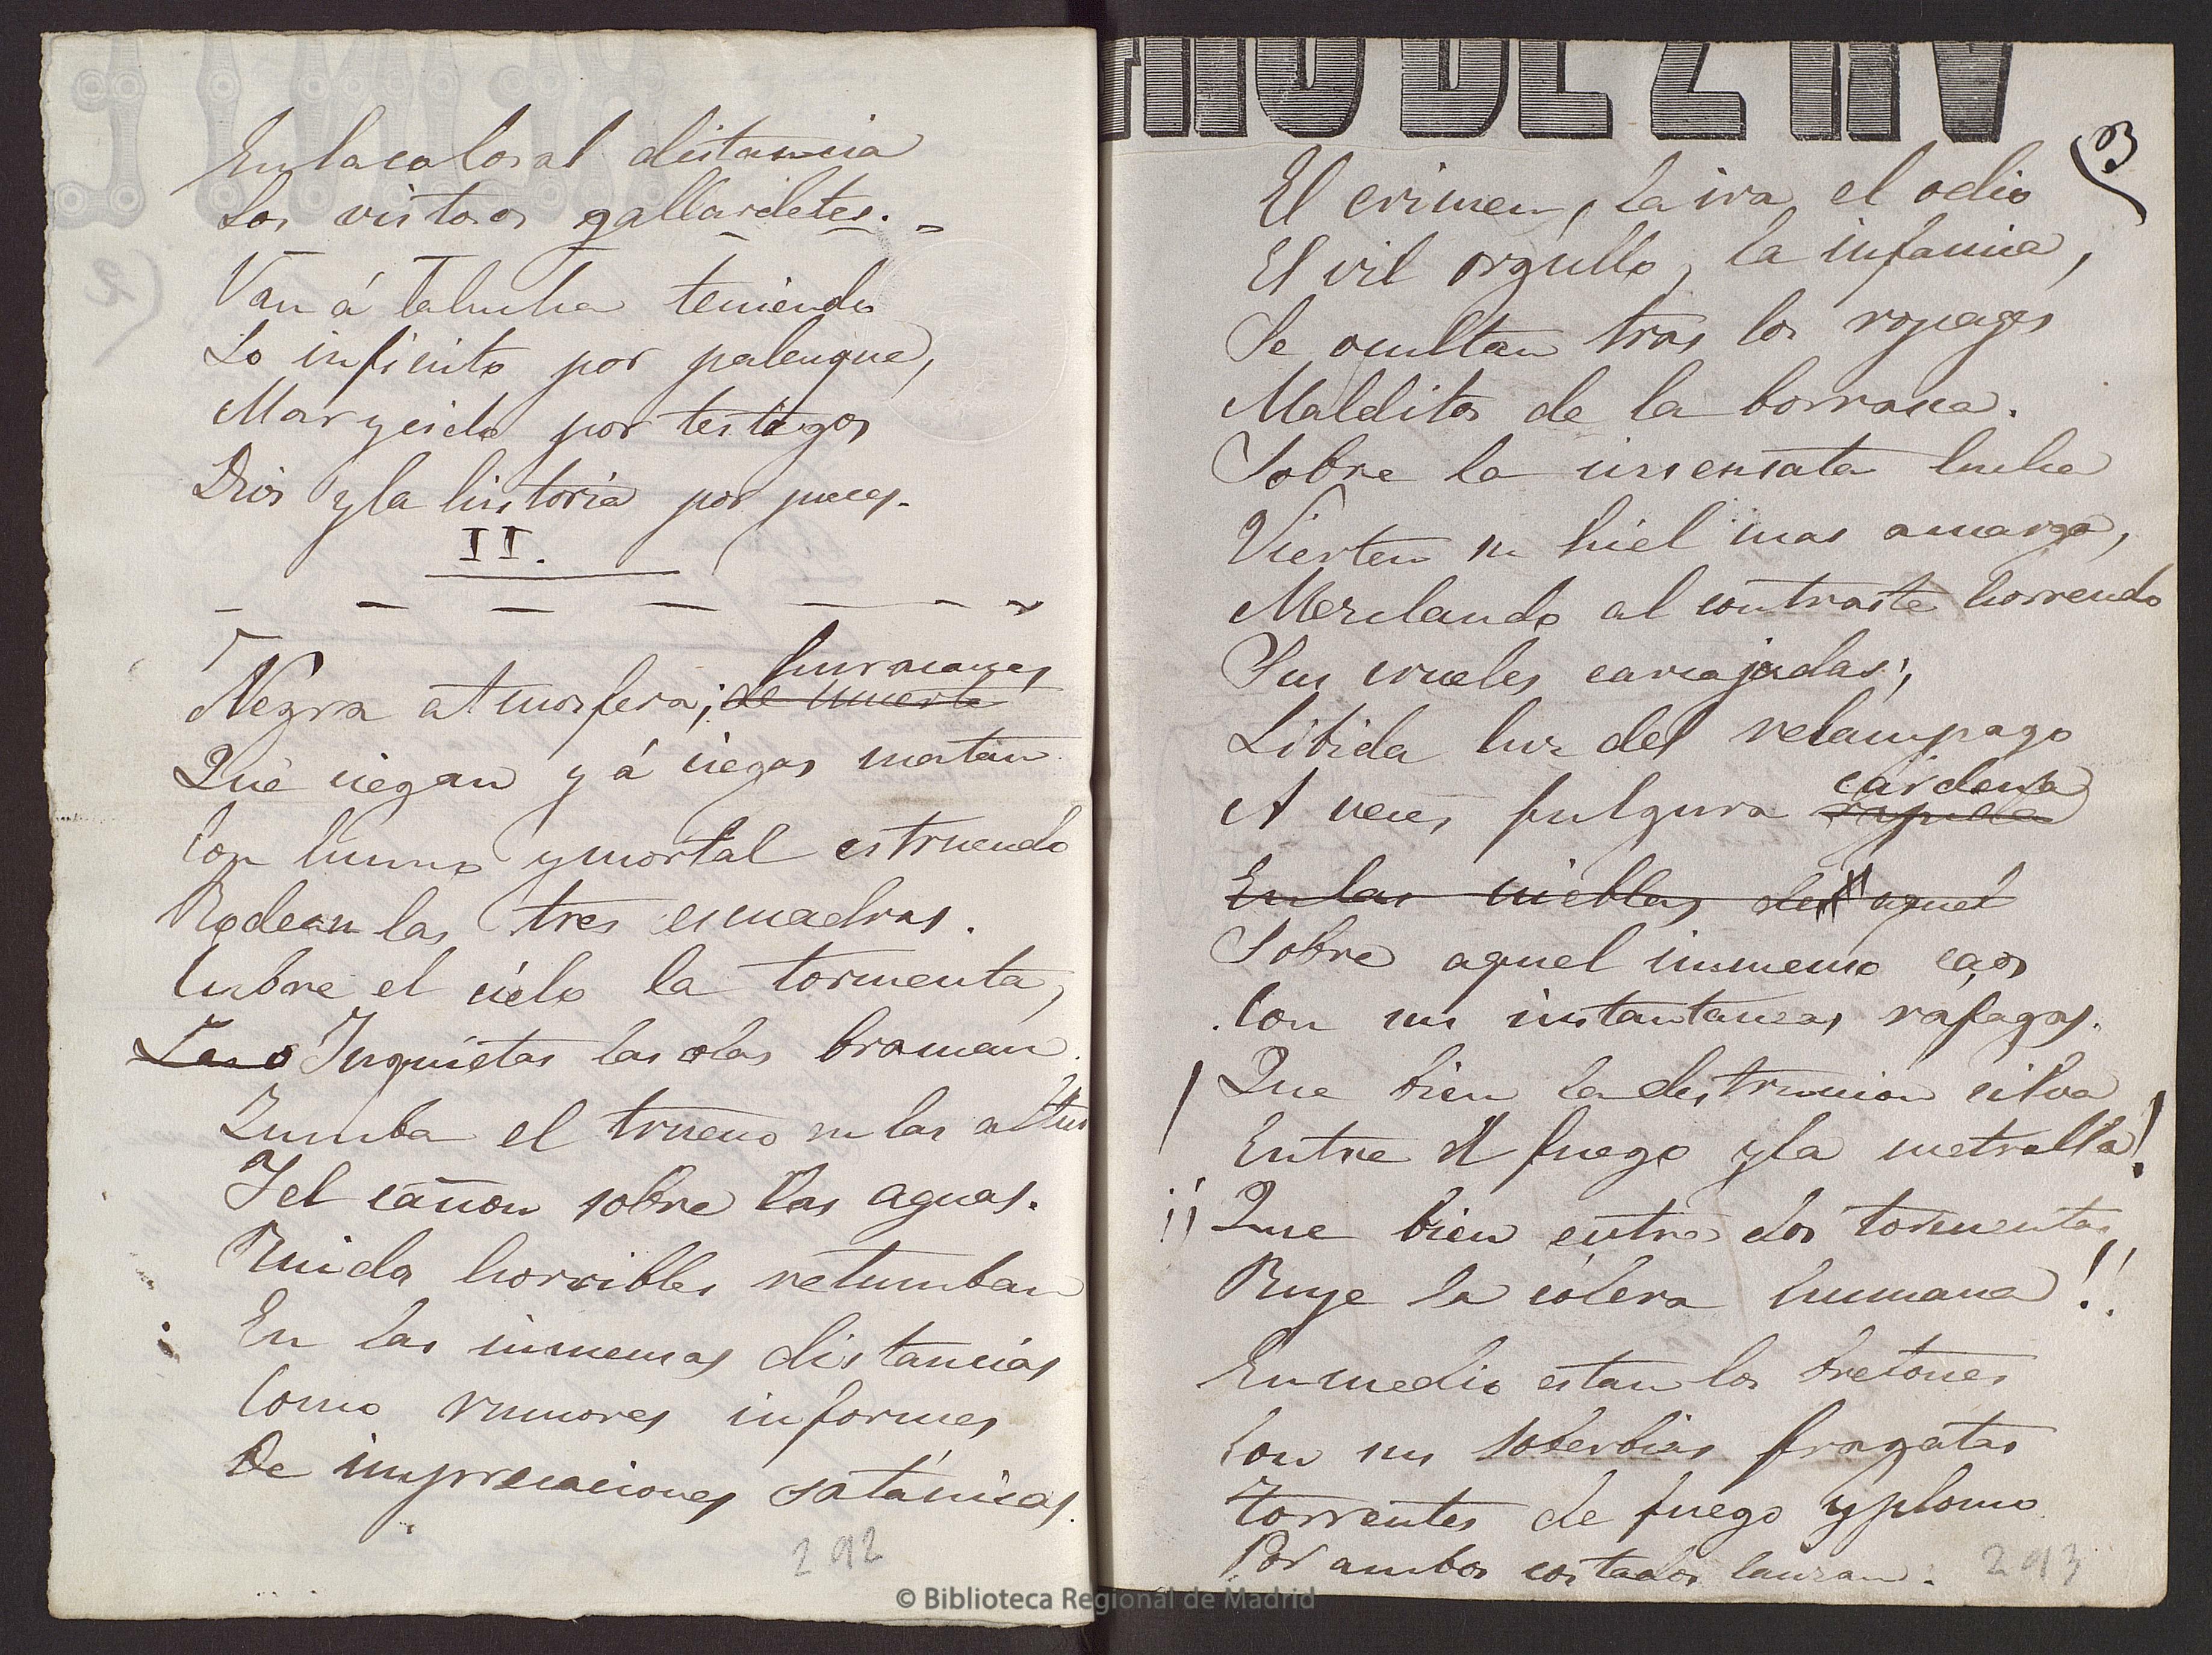 En la colosal distancia
Los vistosos gallardetes. =
Van á la lucha teniendo
Lo infinito por palenque,
Mar y cielo por testigos
Dios y la historia por jueces.
II.
Negra atmosfera; de muerte huracanes
Que ciegan y á ciegas matan
Con humo y mortal estruendo
Rodean las tres escuadras.
Cubre el cielo la tormenta,
Las o Inquietas las olas braman
Zumba el trueno en las alturas
Y el cañon sobre las aguas.
Ruidos horribles retumban
En las inmensas distancias
Como rumores informes
De imprecaciones satánicas.
292
(3
El crimen, la ira, el odio
El vil orgullo, la infamia,
Se ocultan tras los ropages
Malditos de la borrasca.
Sobre la insensata lucha
Vierten su hiel mas amarga,
Mezclando al contraste horrendo
Sus crueles carcajadas;
Libida luz del relampago
A veces fulgura rapida cárdena
En las nieblas de aquel
Sobre aquel inmenso caos
Con sus instantaneas rafagas.
¡Que bien la destruccion silva
Entre el fuego y la metralla!
¡¡Que bien entre dos tormentas
Ruge la cólera humana!!
En medio estan los bretones
Con sus soberbias fragatas
Torrentes de fuego y plomo
Por ambos costados lanzan.
293
© Biblioteca Regional de Madrid